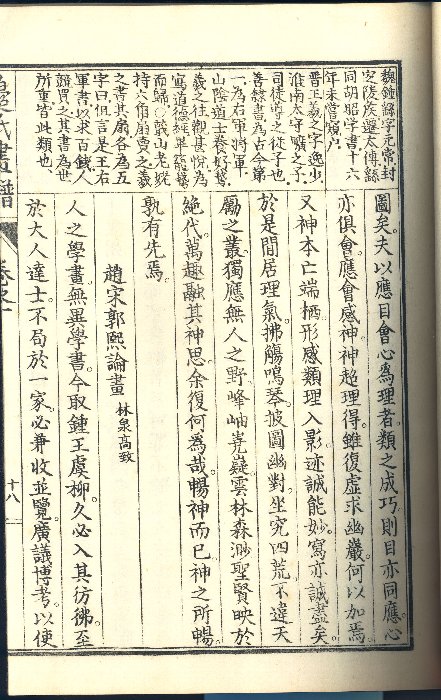 魏鍾繇字元常封
定陵矦遷太傅繇
同胡昭學書十六
年未嘗窺戶
晉王羲之字逸少
淮南太守曠之子
司徒導之從子也
善隸書為古今第
一為右軍將軍
山陰道士養好鵞
羲之往觀甚悅為
寫道德經畢籠鵞
而歸〇蕺山老嫗
持六角扇賣之羲
之書其扇各為五
字曰但言是王右
軍書以求百錢人
競買之其書為世
所重皆此類也
圖矣。夫以應目會心為理者。類之成巧。則目亦同應。心
亦俱會。應會感神。神超理得。雖復虛求幽巖。何以加焉。
又神本亡端。栖形感類。理入影迹。誠能妙寫。亦誠盡矣。
於是閒居理氣。拂觴鳴琴。披圖幽對。坐究四荒。不違天
勵之藂。獨應無人之野。峰岫嶤嶷。雲林森渺。聖賢映於
絕代。萬趣融其神思。余復何為哉。暢神而已。神之所暢。
孰有先焉。
趙宋郭熙論畫 林泉高致
人之學畫。無異學書。今取鍾王虞柳。久必入其彷彿。至
於大人達士。不局於一家。必兼收並覽。廣議博考。以使
畫譜
十八